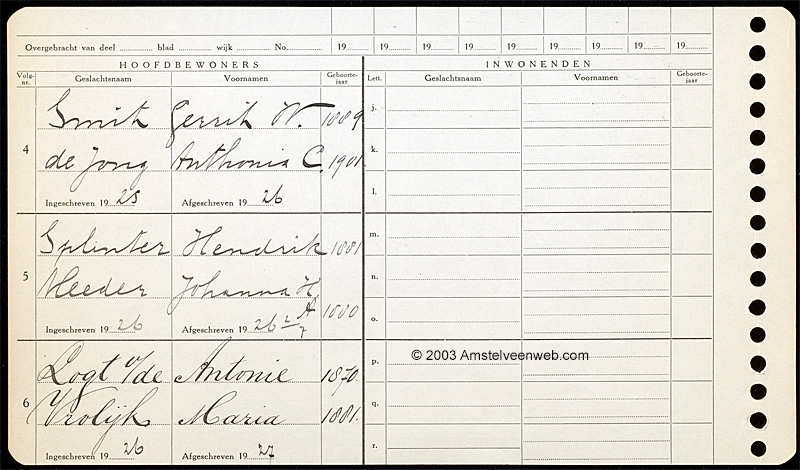 Overgebracht van deel ........ blad ........ wijk ........ No. ........ 19 19 19 19 19 19 19 19 19
HOOFDBEWONERS INWONENDEN
Volg-nr. Geslachtsnaam Voornamen Geboorte-jaar Lett. Geslachtsnaam Voornamen Geboorte-jaar
Smit Gerrit W. 1889 j.
4
de Jong Anthonia C. 1901 k.
Ingeschreven 19 25 Afgeschreven 19 26 l.
Splinter Hendrik 1881 m.
5
Meeder Johanna H. n.
A 1880 o.
Ingeschreven 19 26 Afgeschreven 19 26 2/7
Logt v/de Antonie 1870 p.
© 2003 Amstelveenweb.com
6
Vrolijk Maria 1881. q.
Ingeschreven 19 26 Afgeschreven 19 27 r.